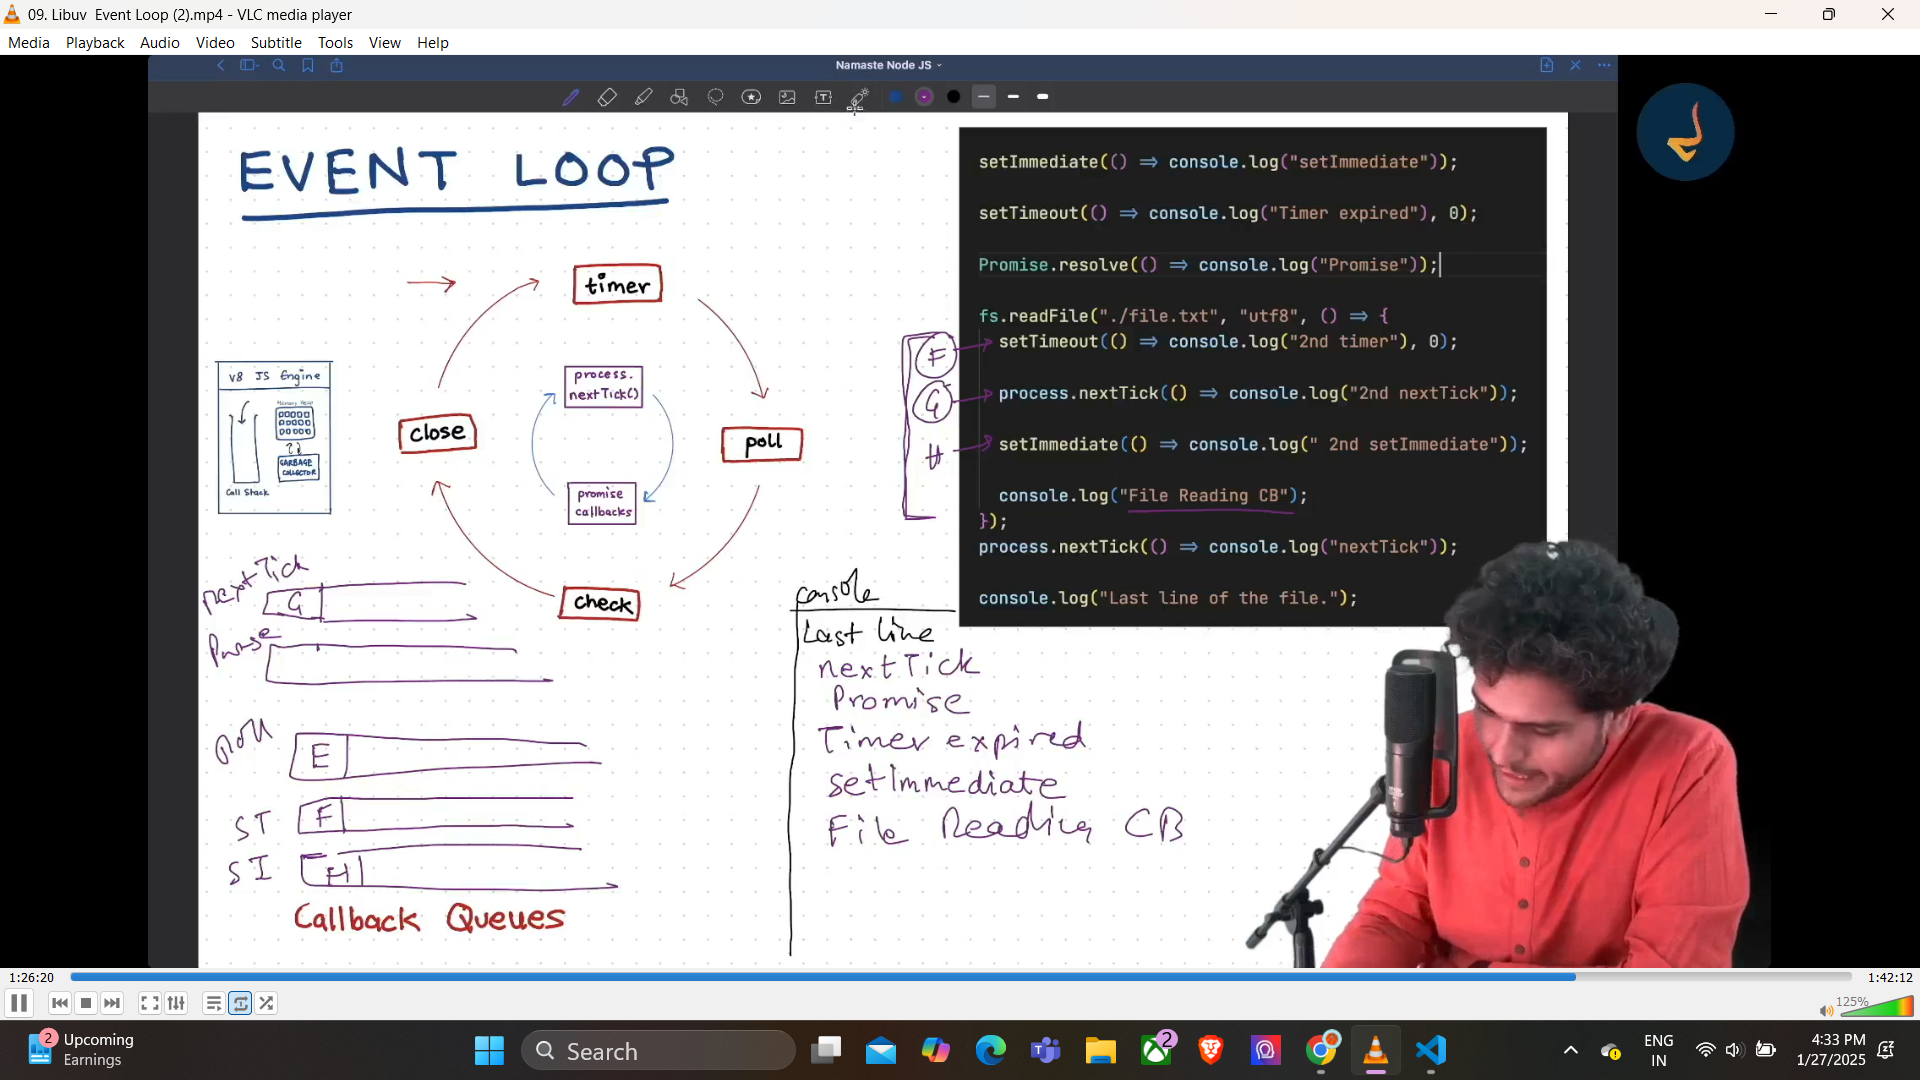 09. Libuv  Event Loop (2).mp4 - VLC media player
Media Playback Audio Video Subtitle Tools View Help
Namaste Node JS
EVENT LOOP
timer
process.
nextTick()
close
poll
promise
callbacks
check
V8 JS Engine
Memory Heap
GARBAGE
COLLECTOR
Call Stack
setImmediate(() ⇒ console.log("setImmediate"));
setTimeout(() ⇒ console.log("Timer expired"), 0);
Promise.resolve(() ⇒ console.log("Promise"));
fs.readFile("./file.txt", "utf8", () ⇒ {
setTimeout(() ⇒ console.log("2nd timer"), 0);
process.nextTick(() ⇒ console.log("2nd nextTick"));
setImmediate(() ⇒ console.log(" 2nd setImmediate"));
console.log("File Reading CB");
});
process.nextTick(() ⇒ console.log("nextTick"));
console.log("Last line of the file.");
F
G
H
nextTick
G
Poll
E
ST
F
SI
H
Callback Queues
console
Last line
nextTick
Promise
Timer expired
setImmediate
File Reading CB
1:26:20
1:42:12
125%
2
Upcoming
Earnings
Search
2
ENG
IN
4:33 PM
1/27/2025